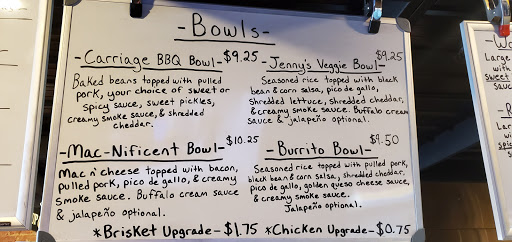 -Bowls-
-Carriage BBQ Bowl-$9.25
Baked beans topped with pulled
pork, your choice of sweet or
spicy sauce, sweet pickles,
creamy smoke sauce, & shredded
cheddar.
-Jenny's Veggie Bowl-$9.25
Seasoned rice topped with black
bean & corn salsa, pico de gallo,
shredded lettuce, shredded cheddar,
& creamy smoke sauce. Buffalo cream
sauce & jalapeño optional.
-Mac-Nificent Bowl-$10.25
Mac n' cheese topped with bacon,
pulled pork, pico de gallo, & creamy
smoke sauce. Buffalo cream sauce
& jalapeño optional.
-Burrito Bowl-$9.50
Seasoned rice topped with pulled pork,
black bean & corn salsa, shredded cheddar,
pico de gallo, golden queso cheese sauce,
& creamy smoke sauce.
Jalapeño optional.
*Brisket Upgrade-$1.75 *Chicken Upgrade-$0.75
Large
with
sweet
Large